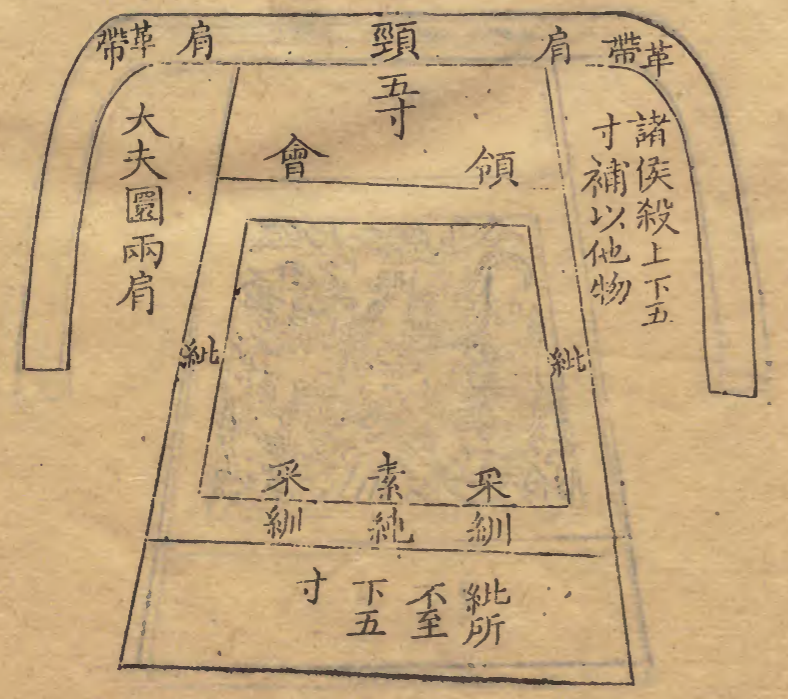 革帶
肩
頸五寸
肩
革帶
諸侯殺上下五
寸補以他物
大夫圜兩肩
領
會
紕
紕
采紃
素純
采紃
紕所
不至
下五
寸